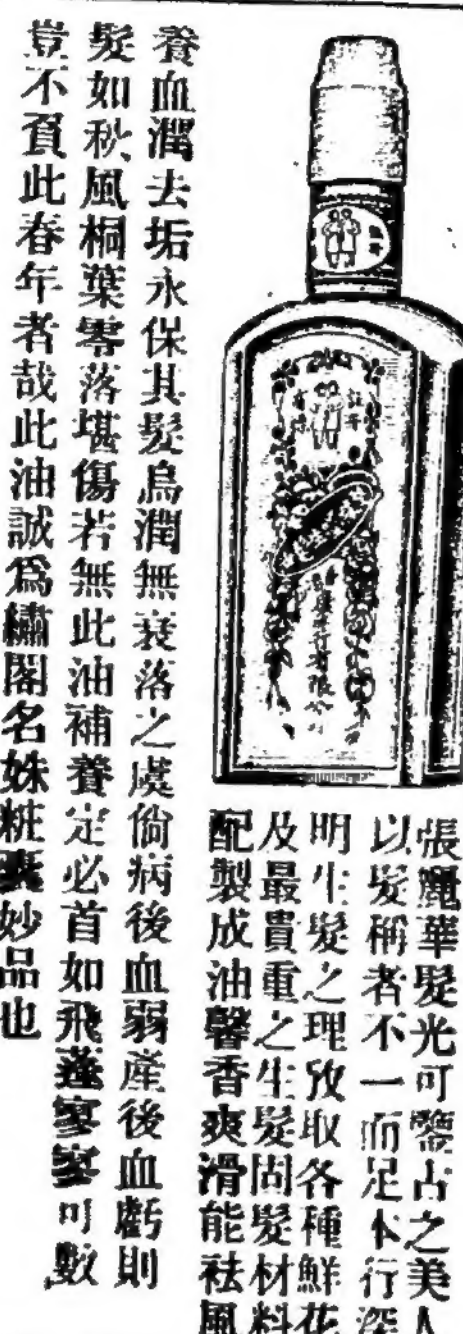 張麗華髮光可鑒古之美人
以髮稱者不一而足本行深
明生髮之理攷取各種鮮花
及最貴重之生髮固髮材料
配製成油馨香爽滑能祛風
養血潤去垢永保其髮烏潤無衰落之虞倘病後血弱產後血虧則
髮如秋風桐葉零落堪傷若無此油補養定必首如飛蓬寥寥可數
豈不負此春年者哉此油誠爲繡閣名姝粧奩妙品也
雙 妹
有限公司